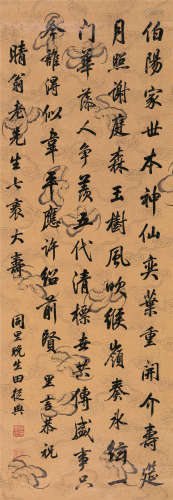 伯陽家世本神仙奕葉重開介壽筵
月照謝庭森玉樹風吹緱嶺奏氷絃一
門華人爭羨五代清標世共傳盛事只
今誰得似韋平應許紹前賢 里言恭祝
晴翁老先生七袠大壽
同里晚生田從典